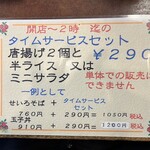 開店～2時 迄の
タイムサービスセット
唐揚げ2個と ￥290
半ライス 又は
ミニサラダ
単体での販売は
できません
一例として
せいろそば + タイムサービスセット
760円 + 290円 = 1050円 税込
玉子丼
910円 + 290円 = 1200円 税込